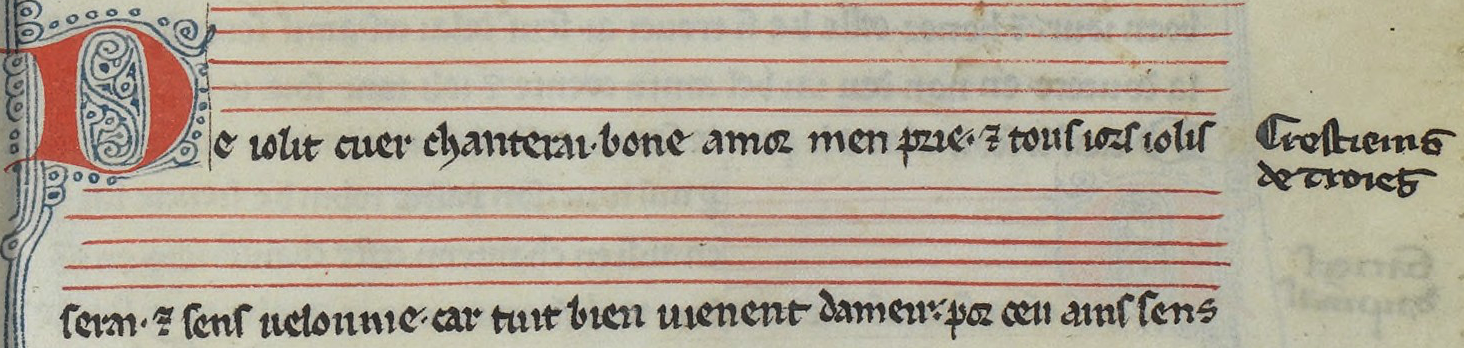 De iolit cuer chanterai· bone amor men prie· ⁊ tous iors iolis
Crestiens
de troies
serai· ⁊ sens uelonnie· car tuit bien uienent dameir· por ceu ains sens